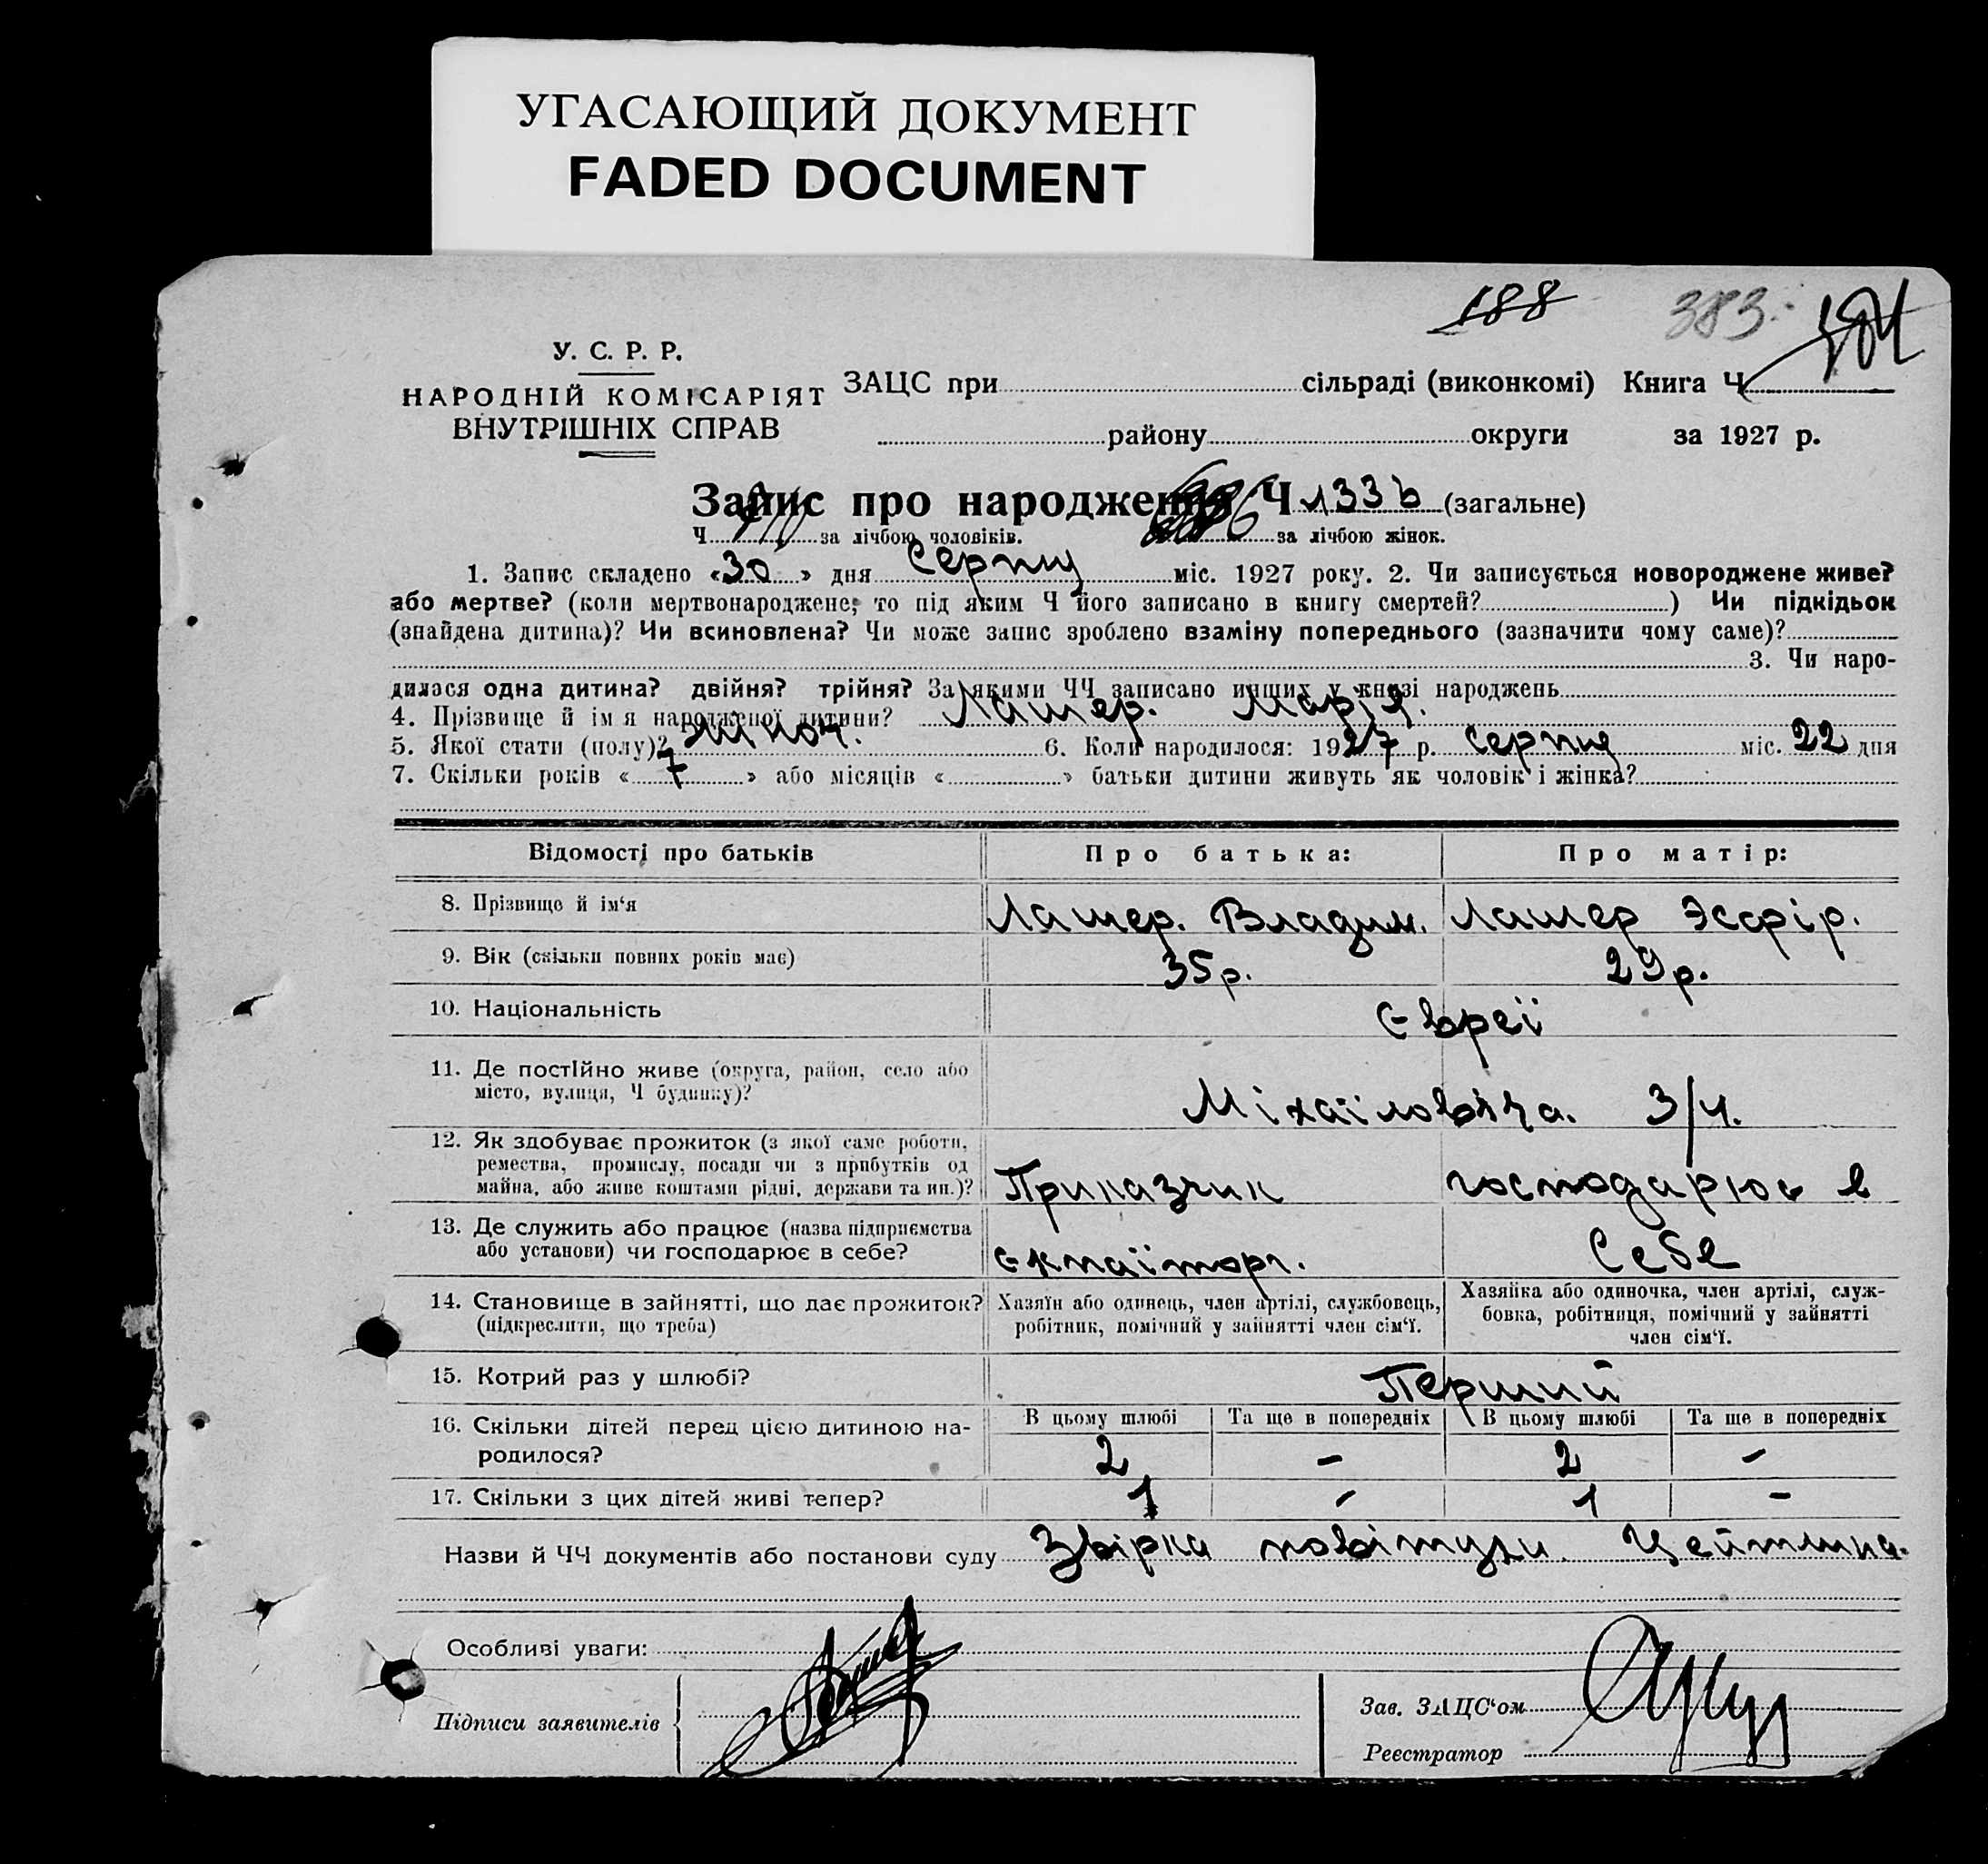 УГАСАЮЩИЙ ДОКУМЕНТ
FADED DOCUMENT
188 383
У. С. Р. Р.
НАРОДНІЙ КОМІСАРІЯТ
ВНУТРІШНІХ СПРАВ
ЗАЦС при сільраді (виконкомі) Книга Ч
району округи за 1927 р.
Запис про народження Ч 1336 (загальне)
Ч за лічбою чоловіків. 686 за лічбою жінок.
1. Запис складено «30» дня Серпня міс. 1927 року. 2. Чи записується новороджене живе?
або мертве? (коли мертвонароджене, то під яким Ч його записано в книгу смертей? ) Чи підкідьок
(знайдена дитина)? Чи всиновлена? Чи може запис зроблено взаміну попереднього (зазначити чому саме)?
3. Чи наро-
дилася одна дитина? двійня? трійня? За якими ЧЧ записано инших у книзі народжень
4. Прізвище й ім я народженої дитини? Лашер. Марія.
5. Якої стати (полу)? жіноч. 6. Коли народилося: 1927 р. серпня міс. 22 дня
7. Скільки років «7» або місяців « » батьки дитини живуть як чоловік і жінка?
Відомості про батьків Про батька: Про матір:
8. Прізвище й ім‘я Лашер. Владим. Лашер Эсфір.
9. Вік (скільки повних років має) 35р. 29р.
10. Національність Євреї
11. Де постійно живе (округа, район, село або
місто, вулиця, Ч будинку)? Міхаіловська. 3/4.
12. Як здобуває прожиток (з якої саме роботи,
ремества, промислу, посади чи з прибутків од
майна, або живе коштами рідні, держави та ин.)? Приказчик господарює в
13. Де служить або працює (назва підприємства
або установи) чи господарює в себе? Себе
14. Становище в зайнятті, що дає прожиток?
(підкреслити, що треба)
Хазяїн або одинець, член артілі, службовець,
робітник, помічний у зайнятті член сім‘ї.
Хазяйка або одиночка, член артілі, служ-
бовка, робітниця, помічний у зайнятті
член сім‘ї.
15. Котрий раз у шлюбі? Перший
16. Скільки дітей перед цією дитиною на-
родилося?
В цьому шлюбі Та ще в попередніх В цьому шлюбі Та ще в попередніх
2 - 2 -
17. Скільки з цих дітей живі тепер? 1 - 1 -
Назви й ЧЧ документів або постанови суду Звірка повітухи Цейтлина.
Особливі уваги:
Підписи заявителів
Зав. ЗАЦС‘ом
Реєстратор